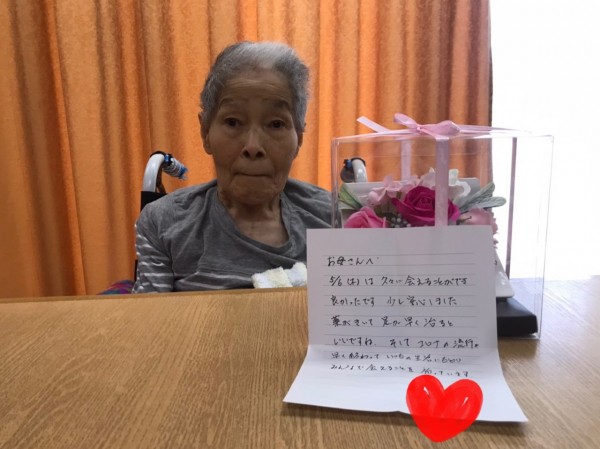 お母さんへ
(木)は 久々に 会える
良かったです 少し安心しました
薬がきいて 足が 早く 治ると
いいですね。 そして コロナの 流行が
早く終わって いつもの生活にもどり
みんなで会えることを 祈っています